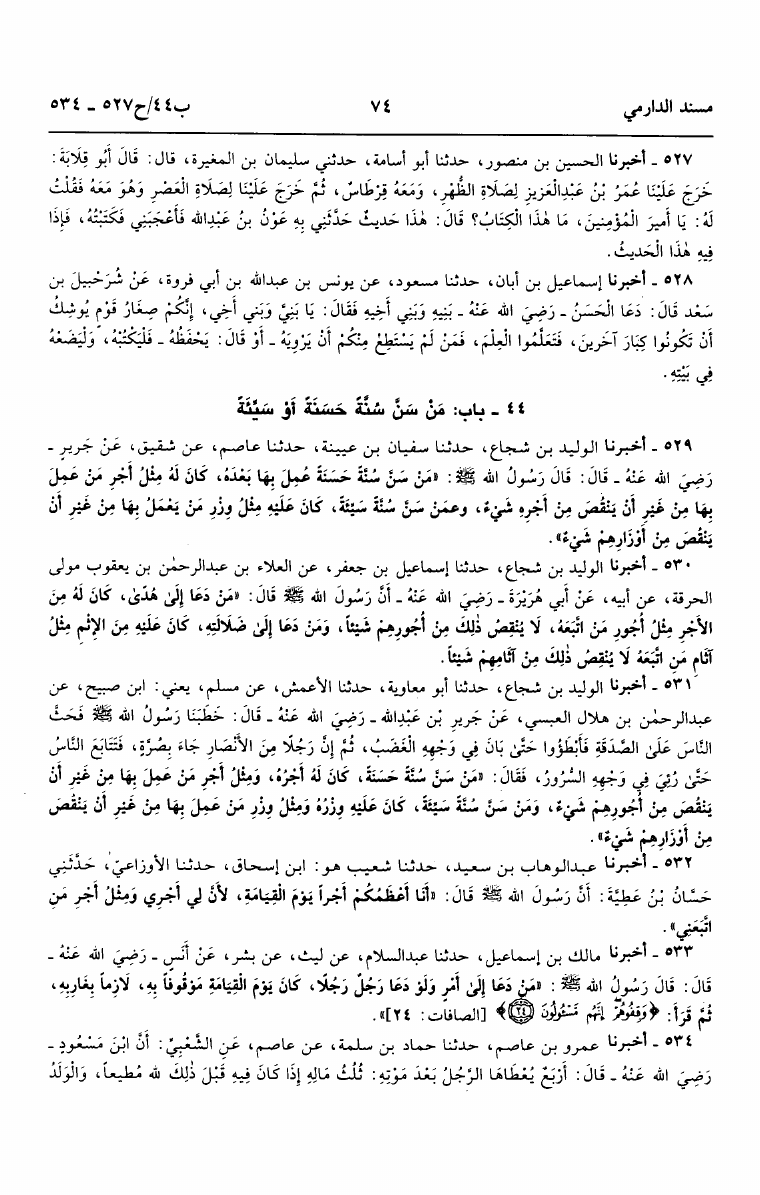 مسند الدارمي ٧٤ ب٤٤/ح٥٢٧ ـ ٥٣٤
٥٢٧ ـ أخبرنا الحسين بن منصور، حدثنا أبو أسامة، حدثني سليمان بن المغيرة، قال: قَالَ أَبُو قِلَابَةَ:
خَرَجَ عَلَيْنَا عُمَرُ بْنُ عَبْدِالْعَزِيزِ لِصَلَاةِ الظُّهْرِ، وَمَعَهُ قِرْطَاسٌ، ثُمَّ خَرَجَ عَلَيْنَا لِصَلَاةِ الْعَصْرِ وَهُوَ مَعَهُ فَقُلْتُ
لَهُ: يَا أَمِيرَ الْمُؤْمِنِينَ، مَا هٰذَا الْكِتَابُ؟ قَالَ: هٰذَا حَدِيثٌ حَدَّثَنِي بِهِ عَوْنُ بْنُ عَبْدِالله فَأَعْجَبَنِي فَكَتَبْتُهُ، فَإِذَا
فِيهِ هٰذَا الْحَدِيثُ.
٥٢٨ ـ أخبرنا إسماعيل بن أبان، حدثنا مسعود، عن يونس بن عبدالله بن أبي فروة، عَنْ شُرَحْبِيلَ بن
سَعْد قَالَ: دَعَا الْحَسَنُ ـ رَضِيَ الله عَنْهُ ـ بَنِيهِ وَبَنِي أَخِيهِ فَقَالَ: يَا بَنِيَّ وَبَنِي أَخِي، إِنَّكُمْ صِغَارُ قَوْمٍ يُوشِكُ
أَنْ تَكُونُوا كِبَارَ آخَرِينَ، فَتَعَلَّمُوا الْعِلْمَ، فَمَنْ لَمْ يَسْتَطِعْ مِنْكُمْ أَنْ يَرْوِيَهُ ـ أَوْ قَالَ: يَحْفَظْهُ ـ فَلْيَكْتُبْهُ، وَلْيَضَعْهُ
فِي بَيْتِهِ.
٤٤ ـ باب: مَنْ سَنَّ سُنَّةً حَسَنَةً أَوْ سَيِّئَةً
٥٢٩ ـ أخبرنا الوليد بن شجاع، حدثنا سفيان بن عيينة، حدثنا عاصم، عن شقيق، عَنْ جَرِيرٍ ـ
رَضِيَ الله عَنْهُ ـ قَالَ: قَالَ رَسُولُ الله ﷺ: «مَنْ سَنَّ سُنَّةً حَسَنَةً عُمِلَ بِهَا بَعْدَهُ، كَانَ لَهُ مِثْلُ أَجْرِ مَنْ عَمِلَ
بِهَا مِنْ غَيْرِ أَنْ يَنْقُصَ مِنْ أَجْرِهِ شَيْءٌ، وعمَنْ سَنَّ سُنَّةً سَيِّئَةً، كَانَ عَلَيْهِ مِثْلُ وِزْرِ مَنْ يَعْمَلُ بِهَا مِنْ غَيْرِ أَنْ
يَنْقُصَ مِنْ أَوْزَارِهِمْ شَيْءٌ».
٥٣٠ ـ أخبرنا الوليد بن شجاع، حدثنا إسماعيل بن جعفر، عن العلاء بن عبدالرحمٰن بن يعقوب مولى
الحرقة، عن أبيه، عَنْ أَبِي هُرَيْرَةَ ـ رَضِيَ الله عَنْهُ ـ أَنَّ رَسُولَ الله ﷺ قَالَ: «مَنْ دَعَا إِلَىٰ هُدًى، كَانَ لَهُ مِنَ
الأَجْرِ مِثْلُ أُجُورِ مَنْ اتَّبَعَهُ، لَا يُنْقِصُ ذٰلِكَ مِنْ أُجُورِهِمْ شَيْئاً، وَمَنْ دَعَا إِلَىٰ ضَلَالَتِهِ، كَانَ عَلَيْهِ مِنَ الإِثْمِ مِثْلُ
آثَامِ مَنِ اتَّبَعَهُ لَا يُنْقِصُ ذٰلِكَ مِنْ آثَامِهِمْ شَيْئاً.
٥٣١ ـ أخبرنا الوليد بن شجاع، حدثنا أبو معاوية، حدثنا الأعمش، عن مسلم، يعني: ابن صبيح، عن
عبدالرحمٰن بن هلال العبسي، عَنْ جَرِيرِ بْنِ عَبْدِالله ـ رَضِيَ الله عَنْهُ ـ قَالَ: خَطَبَنَا رَسُولُ الله ﷺ فَحَثَّ
النَّاسَ عَلَىٰ الصَّدَقَةِ فَأَبْطَؤُوا حَتَّىٰ بَانَ فِي وَجْهِهِ الْغَضَبُ، ثُمَّ إِنَّ رَجُلًا مِنَ الأَنْصَارِ جَاءَ بِصُرَّةٍ، فَتَتَابَعَ النَّاسُ
حَتَّىٰ رُئِيَ فِي وَجْهِهِ السُّرُورُ، فَقَالَ: «مَنْ سَنَّ سُنَّةً حَسَنَةً، كَانَ لَهُ أَجْرُهُ، وَمِثْلُ أَجْرِ مَنْ عَمِلَ بِهَا مِنْ غَيْرِ أَنْ
يَنْقُصَ مِنْ أُجُورِهِمْ شَيْءٌ، وَمَنْ سَنَّ سُنَّةً سَيِّئَةً، كَانَ عَلَيْهِ وِزْرُهُ وَمِثْلُ وِزْرِ مَنْ عَمِلَ بِهَا مِنْ غَيْرِ أَنْ يَنْقُصَ
مِنْ أَوْزَارِهِمْ شَيْءٌ».
٥٣٢ ـ أخبرنا عبدالوهاب بن سعيد، حدثنا شعيب هو: ابن إسحاق، حدثنا الأوزاعيّ، حَدَّثَنِي
حَسَّانُ بْنُ عَطِيَّةَ: أَنَّ رَسُولَ الله ﷺ قَالَ: «أَنَا أَعْظَمُكُمْ أَجْراً يَوْمَ الْقِيَامَةِ، لأَنَّ لِي أَجْرِي وَمِثْلُ أَجْرِ مَنِ
اتَّبَعَنِي».
٥٣٣ ـ أخبرنا مالك بن إسماعيل، حدثنا عبدالسلام، عن ليث، عن بشر، عَنْ أَنَسٍ ـ رَضِيَ الله عَنْهُ ـ
قَالَ: قَالَ رَسُولُ الله ﷺ: «مَنْ دَعَا إِلَىٰ أَمْرٍ وَلَوْ دَعَا رَجُلٌ رَجُلًا، كَانَ يَوْمَ الْقِيَامَةِ مَوْقُوفاً بِهِ، لَازِماً بِغَارِبِهِ،
ثُمَّ قَرَأَ: ﴿وَقِفُوهُمْ إِنَّهُم مَّسْئُولُونَ ٢٤﴾ [الصافات: ٢٤]».
٥٣٤ ـ أخبرنا عمرو بن عاصم، حدثنا حماد بن سلمة، عن عاصم، عَنِ الشَّعْبِيِّ: أَنَّ ابْنَ مَسْعُودٍ ـ
رَضِيَ الله عَنْهُ ـ قَالَ: أَرْبَعٌ يُعْطَاهَا الرَّجُلُ بَعْدَ مَوْتِهِ: ثُلُثُ مَالِهِ إِذَا كَانَ فِيهِ قَبْلَ ذٰلِكَ لله مُطِيعاً، وَالْوَلَدُ